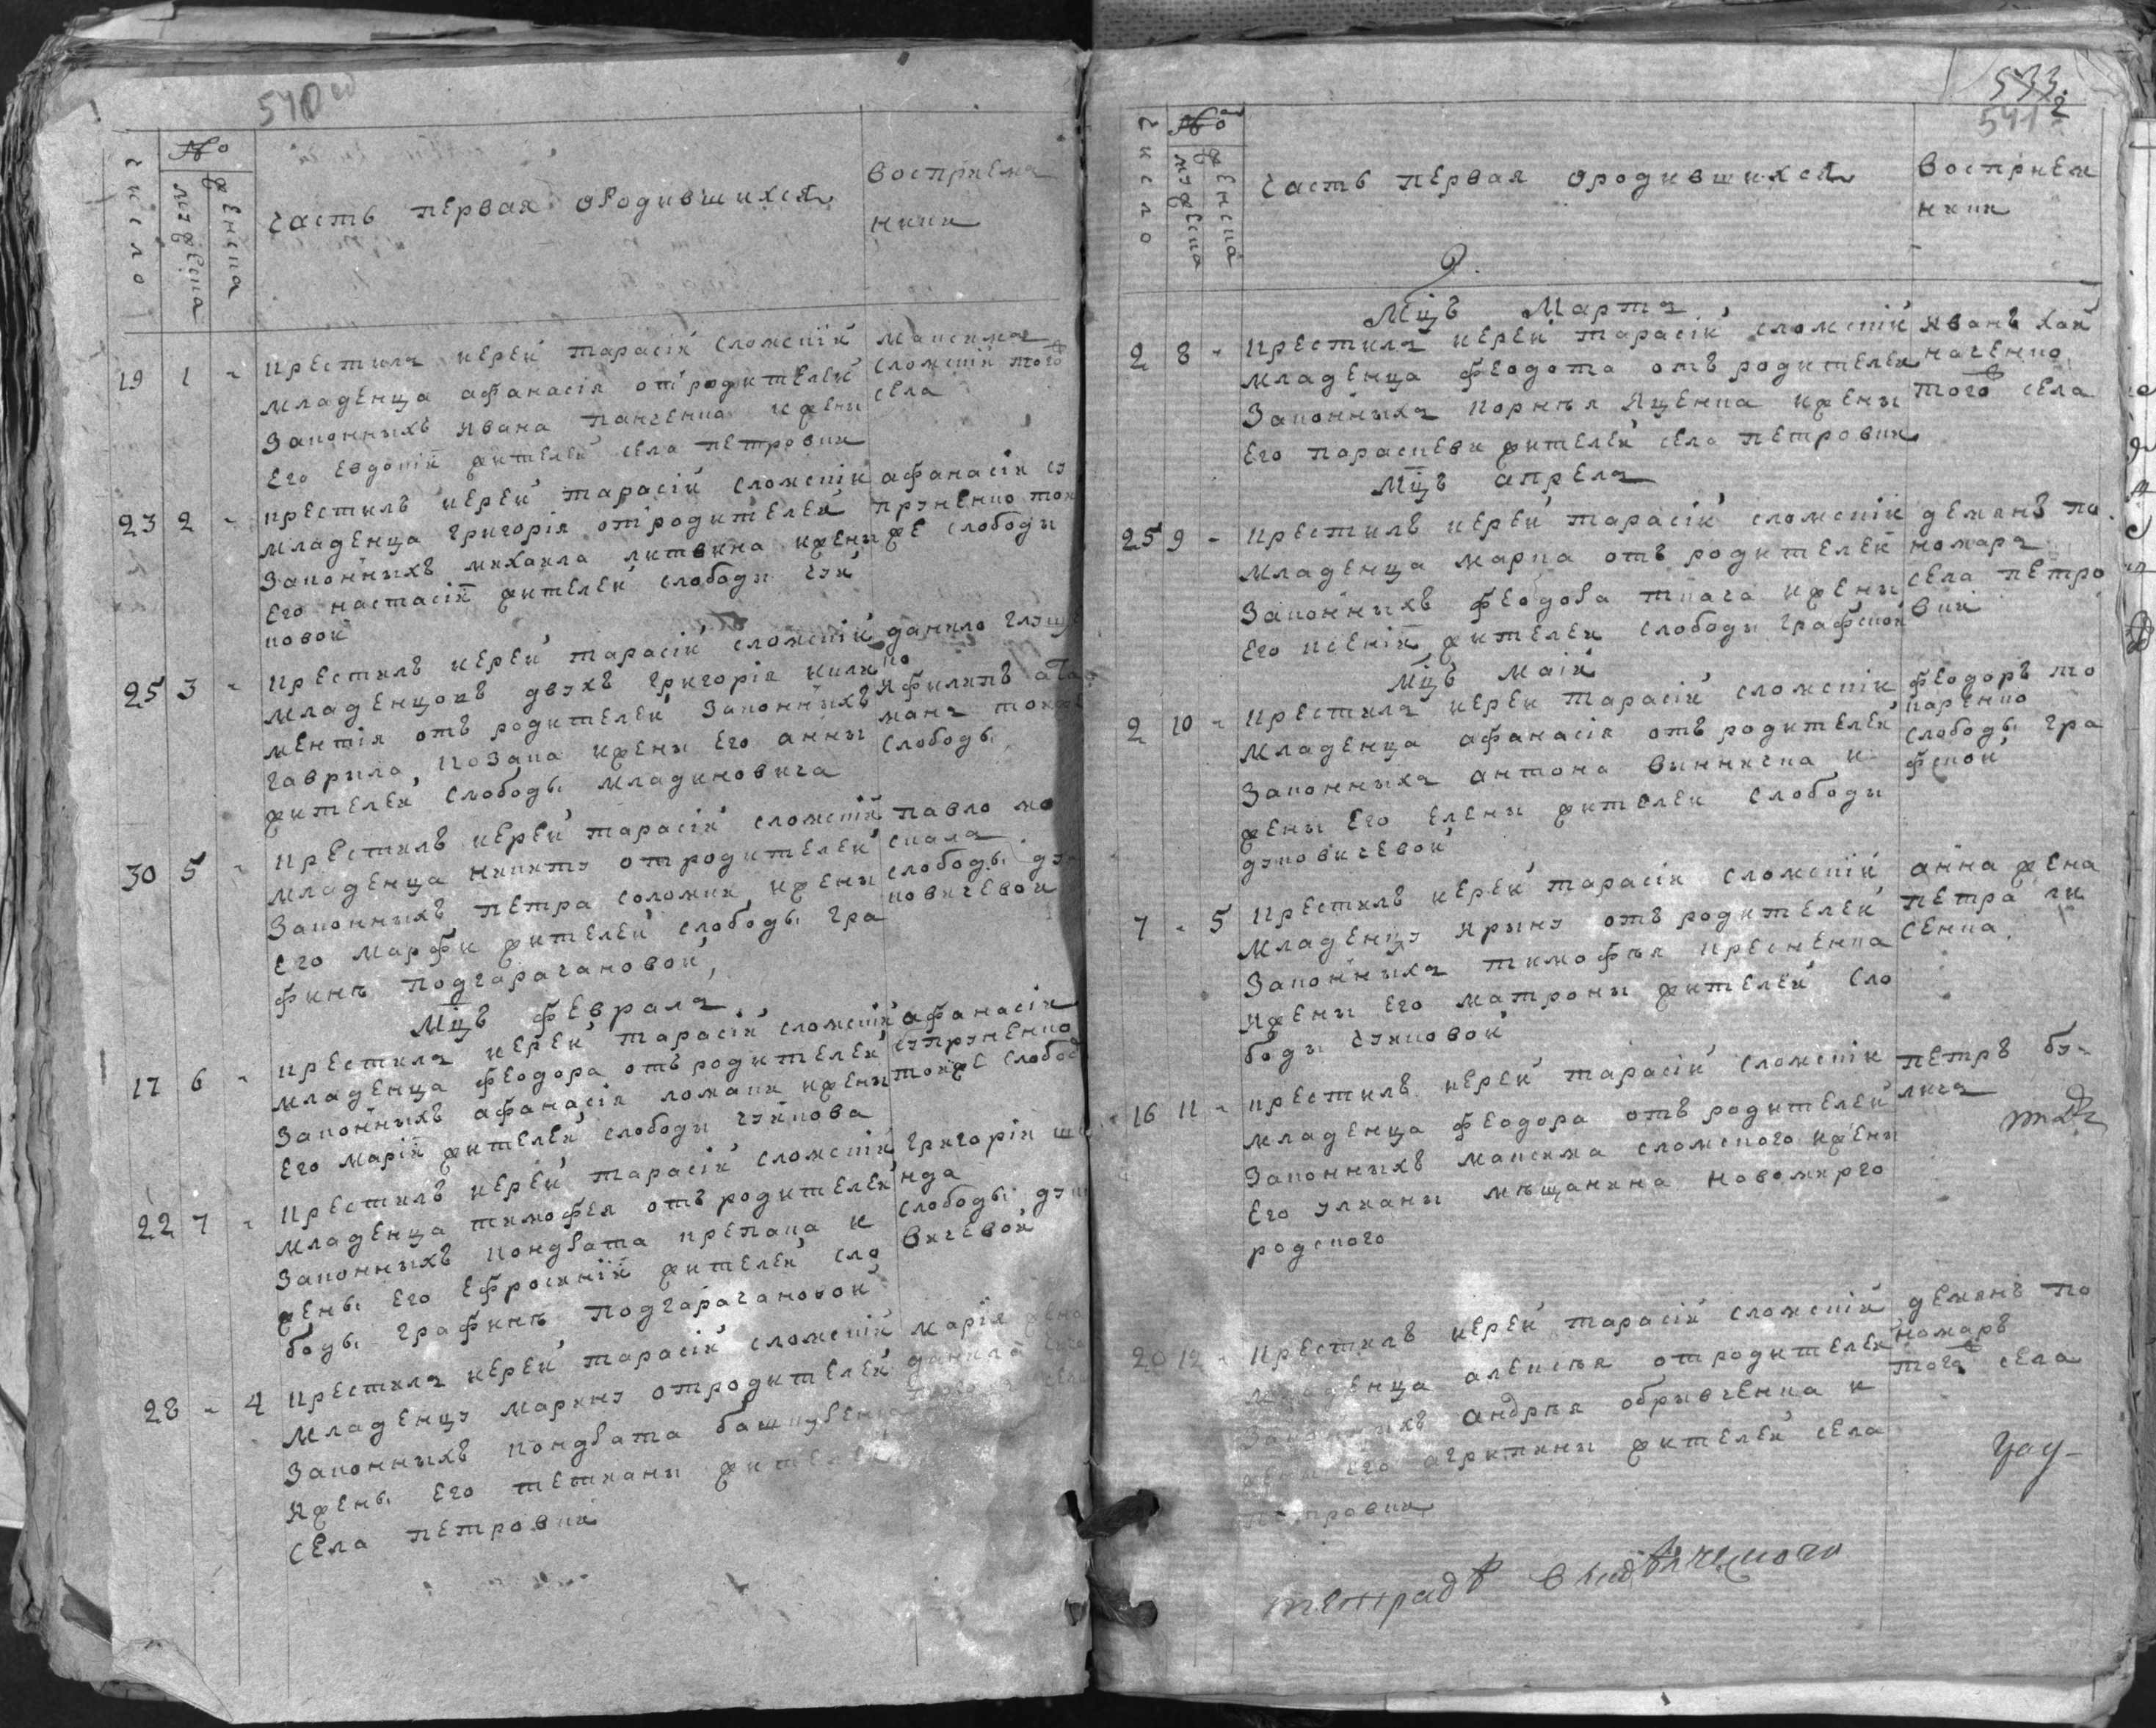 540
№
число
мужеска
женска
часть первая ородившихся
восприем
ники
19 1 - крестилъ иерей тарасій сложскій
младенца афанасія отродителей
законныхъ ивана панченка ижены
его евдокіи жителей села петровки
максимъ
сложскій того
села
23 2 - крестилъ иерей тарасій сложскій
младенца григорія отродителей
законныхъ михаила литвина ижены
его настасіи жителей слободы чуй
ковой
афанасій су
пруненко той
же слободы
25 3 - крестилъ иерей тарасій сложскій
младенцовъ двухъ григорія икли
ментія отъ родителей законныхъ
гаврила, козака ижены его анны
жителей слободы младиновича
данило глущ
ко
ифилипъ ата
манъ тойже
слободы
30 5 - крестилъ иерей тарасій сложскій
младенца никиту отродителей
законныхъ петра соломки ижены
его марфи жителей слободы гра
финъ подгарагановой,
павло мо
скаль
слободы ду
ковичевой
мцъ февраля
17 6 - крестилъ иерей тарасій сложскій
младенца феодора отъ родителей
законныхъ афанасія ломаки ижены
его маріи жителей слободы чуйкова
афанасій
супруненко
тойже слобод
22 7 - крестилъ иерей тарасій сложскій
младенца тимофея отъ родителей
законныхъ кондвата крепака и
жены его ефросиніи жителей сло
боды графинъ подгарагановой
григорій ше
нда
слободы ду
вичевой
28 - 4 крестилъ иерей тарасій сложскій
младенцу марину отродителей
законныхъ кондвата башцувенка
ижены его тетяаны жителей
села петровки
марія жена
данила
533
541 2
№
число
мужеска
женска
часть первая ородившихся
восприем
ники
Мцъ Марта
2 8 - крестилъ иерей тарасій сложскій
младенца феодота отъ родителей
законныхъ корнѣя яценка ижены
его параскеви жителей села петровки
иванъ хай
наченко
того села
Мцъ апреля
25 9 - крестилъ иерей тарасій сложскій
младенца марка отъ родителей
законныхъ феодова ткача ижены
его ксеніи жителей слободы графской
демянъ по
номаръ
села петро
вки
Мцъ маія
2 10 - крестилъ иерей тарасій сложскій
младенца афанасія отъ родителей
законныхъ антона винничка и
жены его елены жителей слободы
дуковичевой
феодоръ то
каренко
слободы гра
фской
7 - 5 крестилъ иерей тарасій сложскій
младенцу ирыну отъ родителей
законныхъ тимофѣя кресненка
ижены его матроны жителей сло
боды чуйковой
анна жена
петра ли
сенка.
16 11 - крестилъ иерей тарасій сложскій
младенца феодора отъ родителей
законныхъ максима сложского ижены
его улианы мѣщанина новомирго
родского
петръ бу-
лича
20 12 - крестилъ иерей тарасій сложскій
младенца алексѣя отродителей
законныхъ андрѣя обривченка и
жены его агрипини жителей села
петровки
демянъ по
номаръ
того села